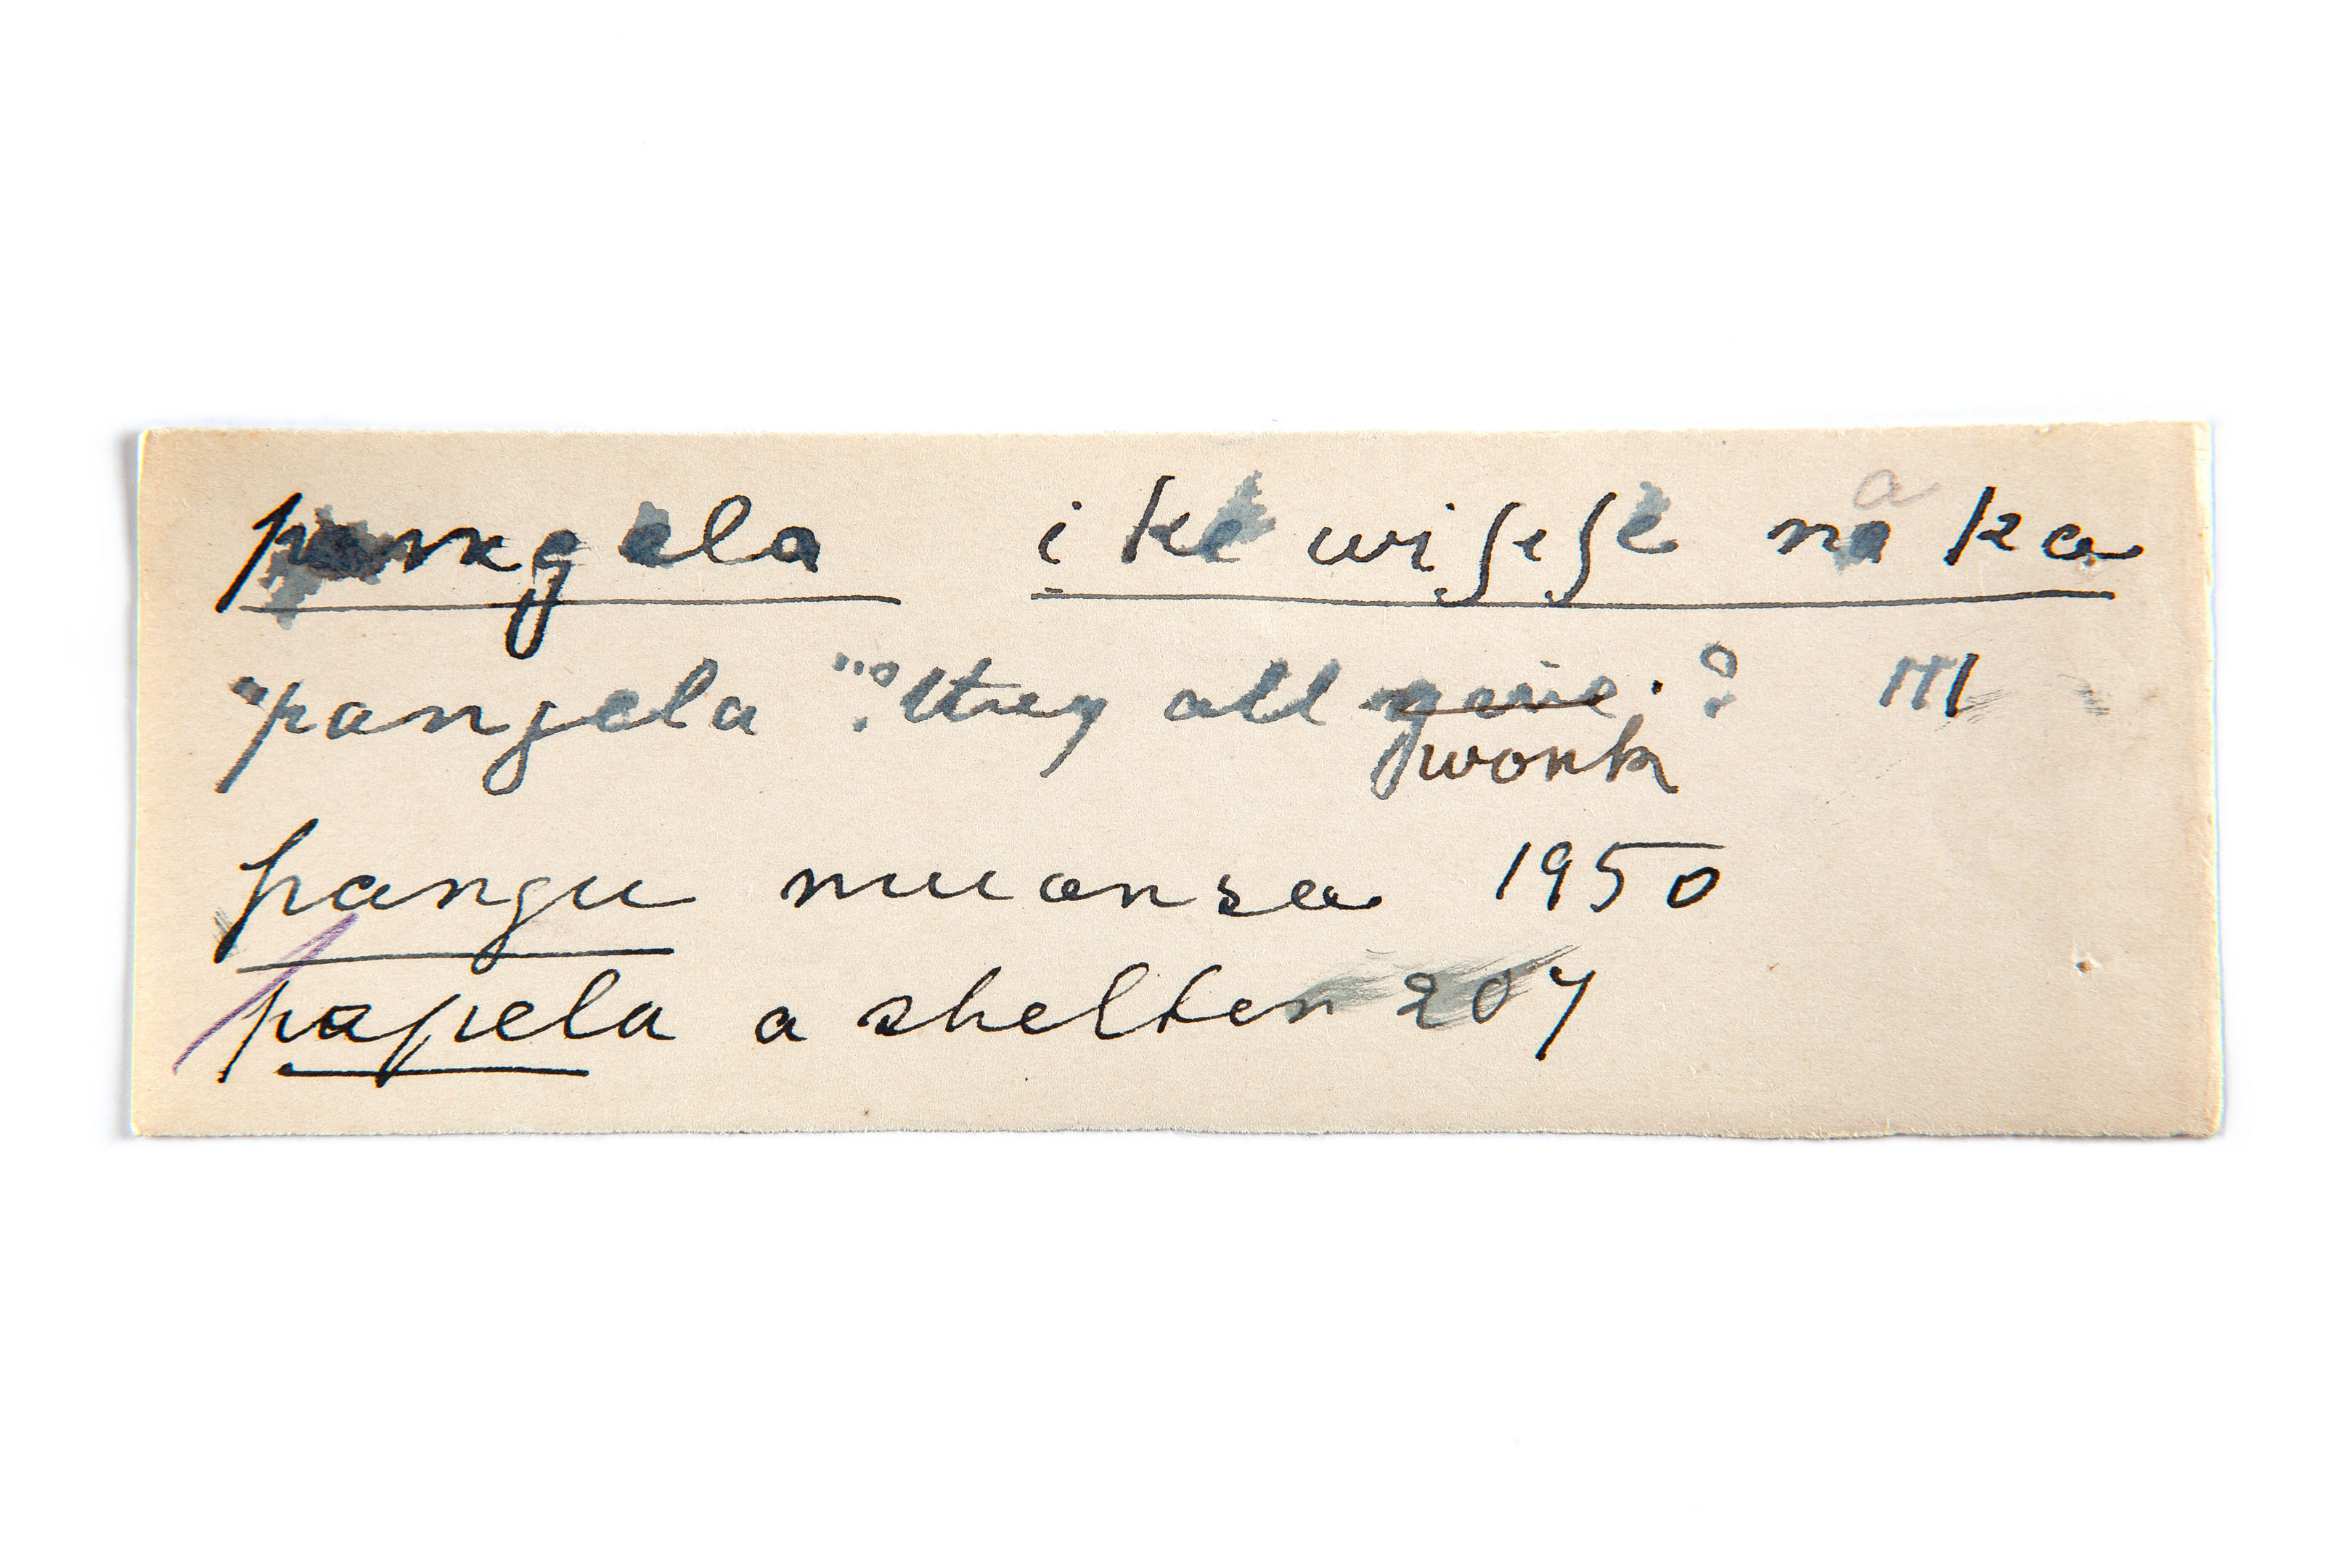 pangela i ke wiſeſe na ka
a
"pangela "? they all give. ? 111
work
pangu muansa 1950
papela a shelter 207